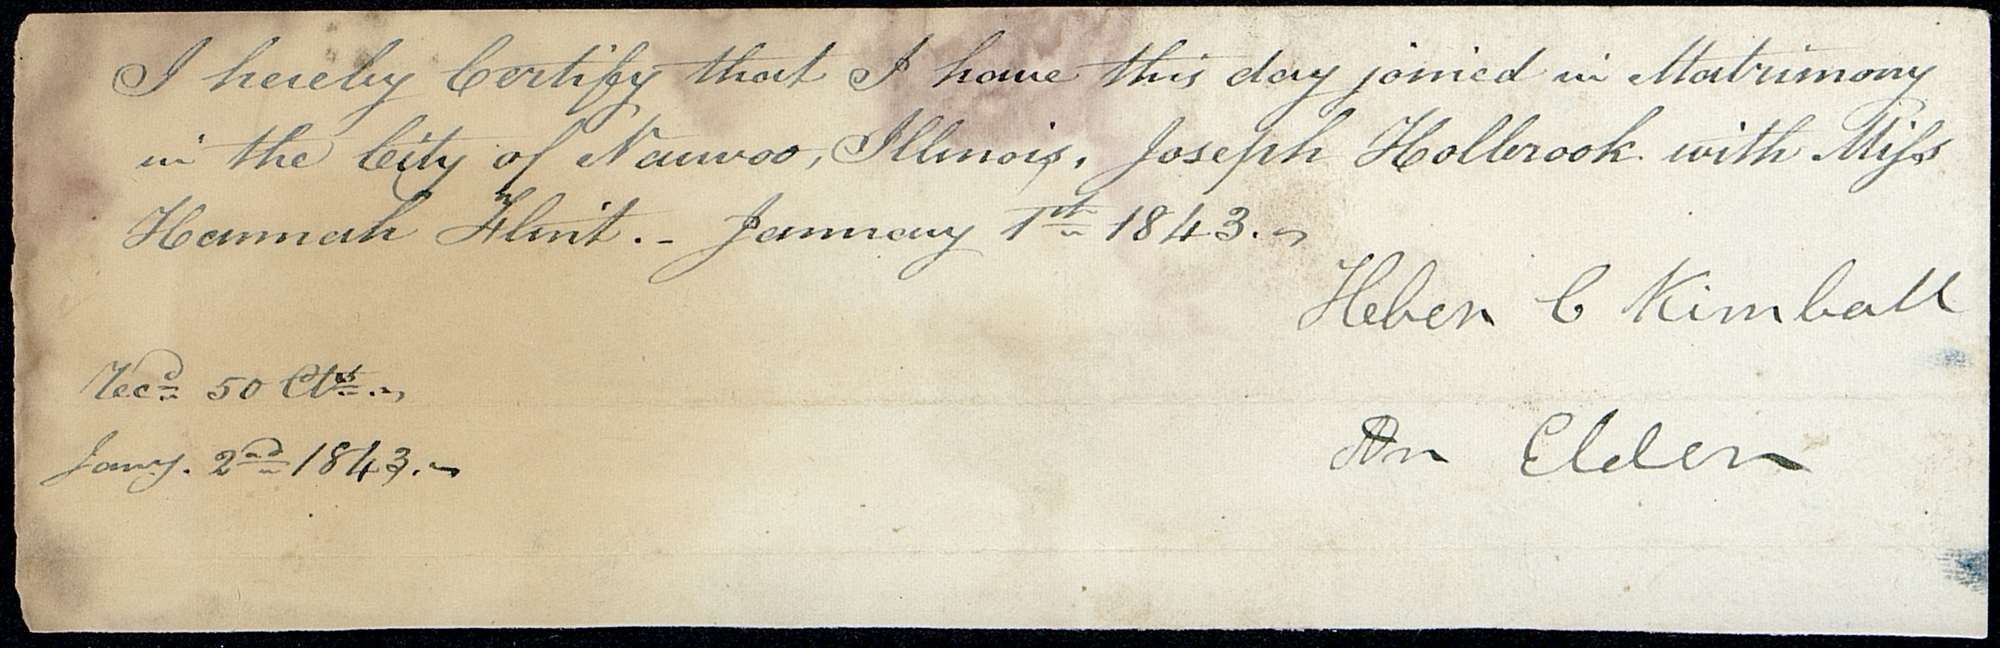 I hereby Certify that I have this day joined in Matrimony
in the City of Nauvoo, Illinois, Joseph Holbrook with Miss
Hannah Flint. - January 1st 1843.
Heber C Kimball
Recd 50 Cts.
An Elder
Jany. 2nd 1843.